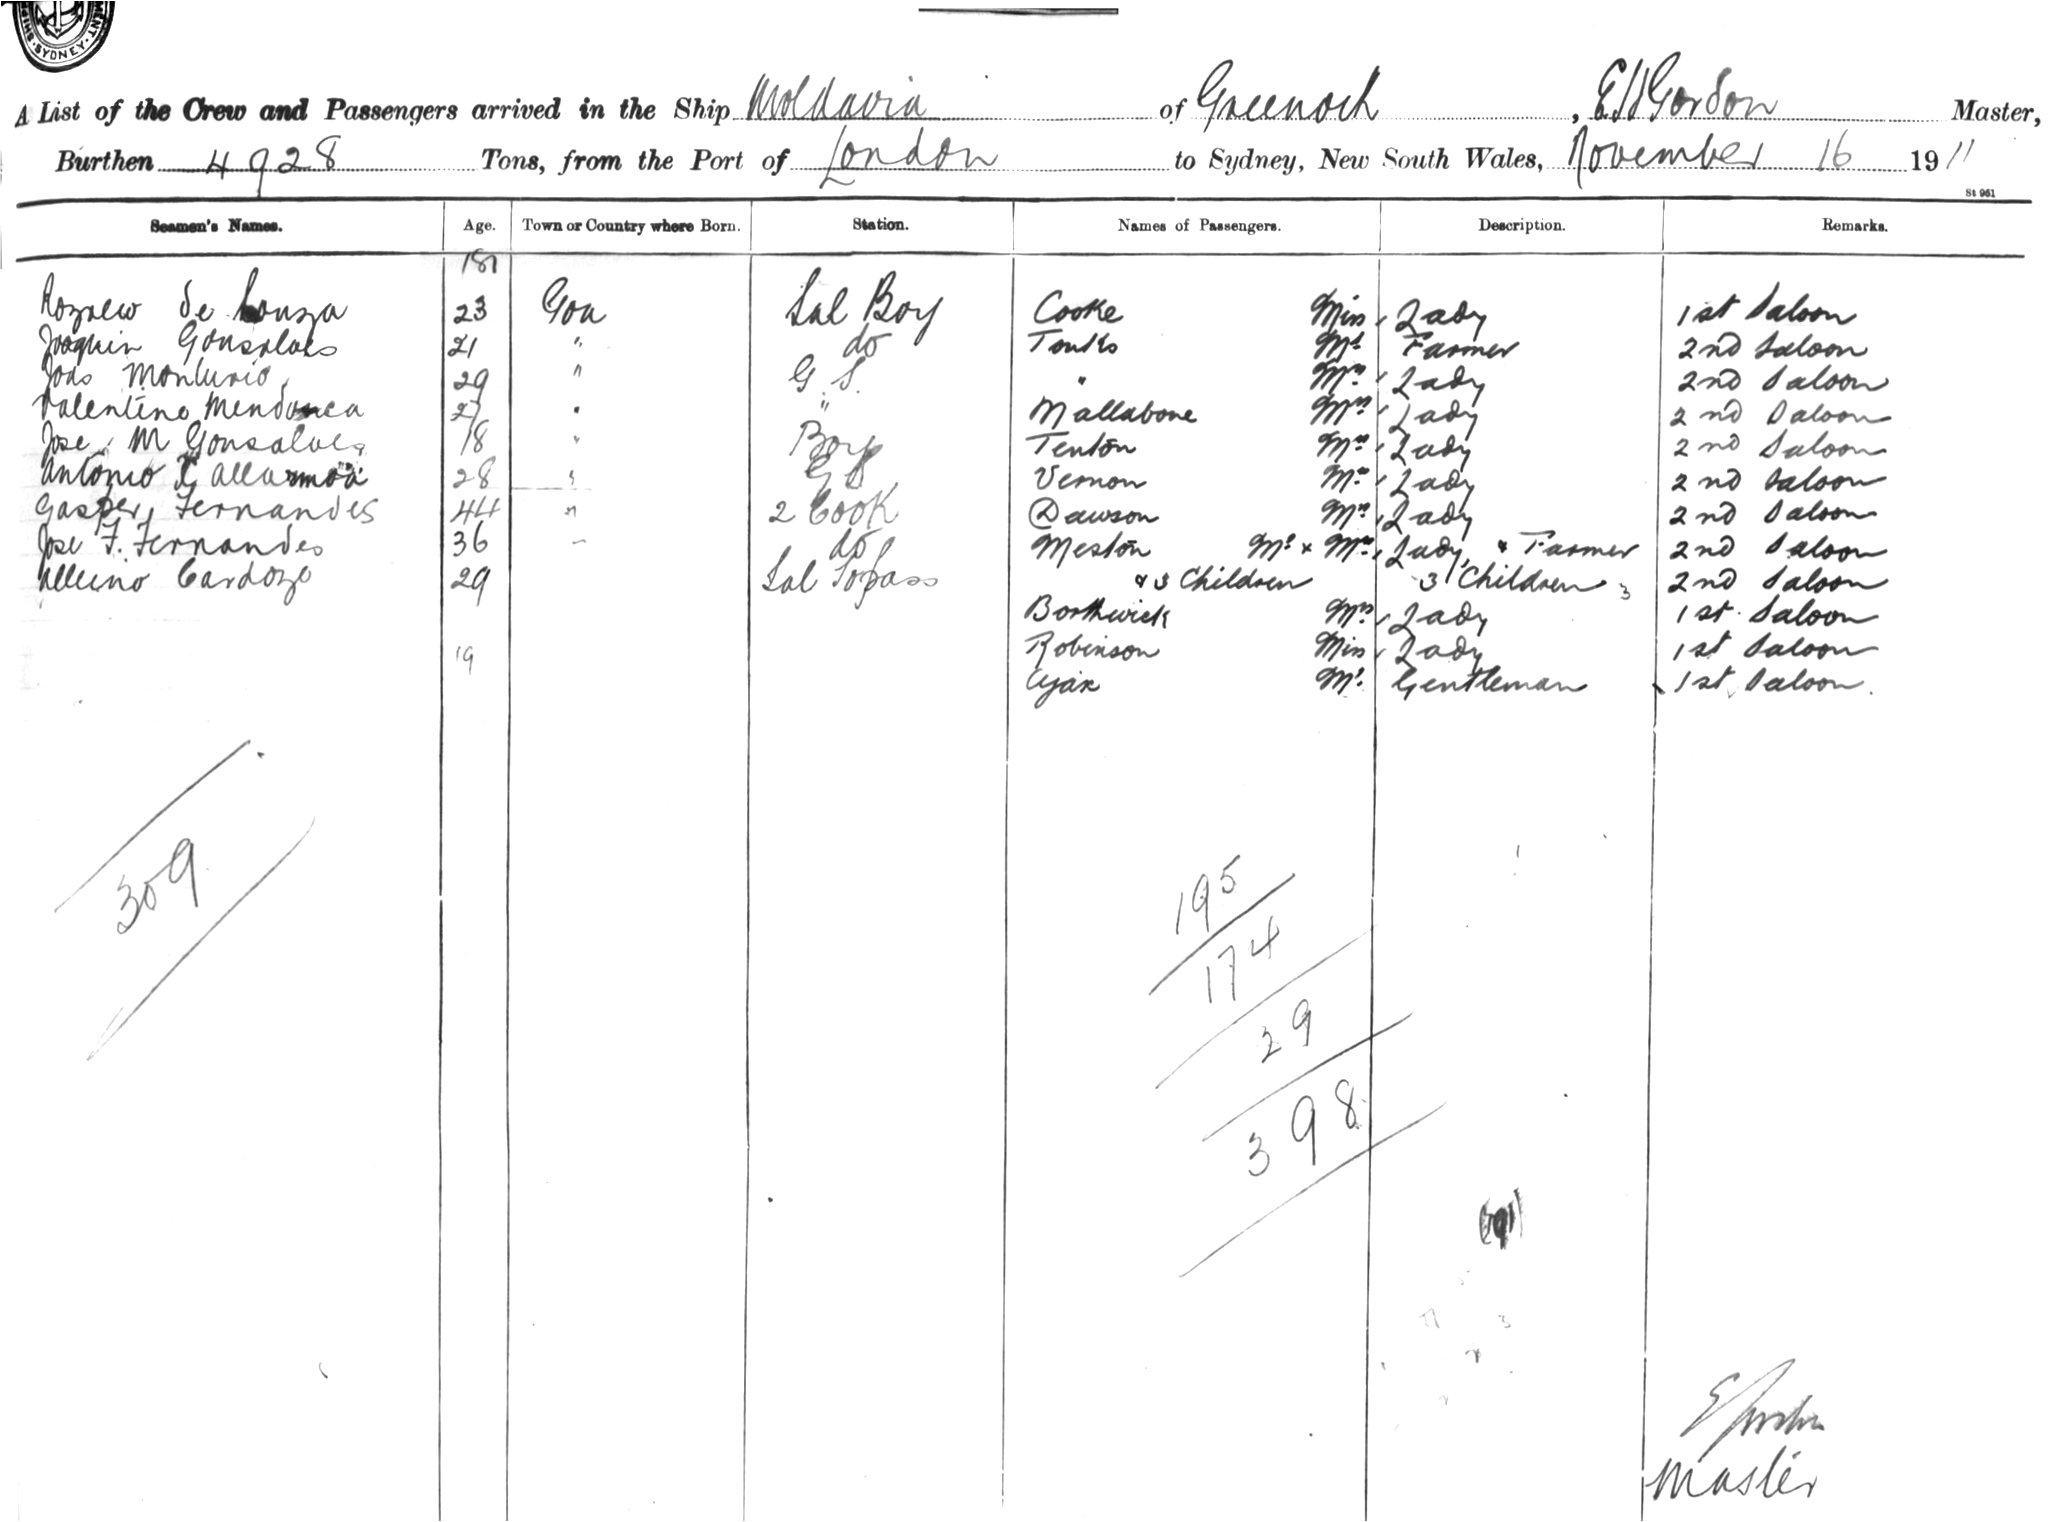 SYDNEY
A List of the Crew and Passengers arrived in the Ship Moldavia of Greenock, E H Gordon Master,
Burthen 4928 Tons, from the Port of London to Sydney, New South Wales, November 16 1911
St 951
Seamen's Names. Age. Town or Country where Born. Station. Names of Passengers. Description. Remarks.
181
de Souza 23 Goa Sal Boy Cooke Miss Lady 1st Saloon
Joaquin Gonsalves 21 " do Tonks Mr Farmer 2nd Saloon
Joao Monturio 29 " G S. " Mrs Lady 2nd Saloon
Valentino Mendonca 27 " " Mallabone Mrs Lady 2nd Saloon
Jose M Gonsalves 18 " Boy Tenton Mrs Lady 2nd Saloon
Antonio 28 " G S Vernon Mrs Lady 2nd Saloon
Gasper Fernandes 44 " 2 Cook Dawson Mrs Lady 2nd Saloon
Jose F. Fernandes 36 " do Meston Mr & Mrs Lady, & Farmer 2nd Saloon
Cardozo 29 Sal Topass & 3 Children 3 Children 3 2nd Saloon
Borthwick Mrs Lady 1st Saloon
19 Robinson Miss Lady 1st Saloon
Mr. Gentleman 1st Saloon.
309
195
174
29
398
Master